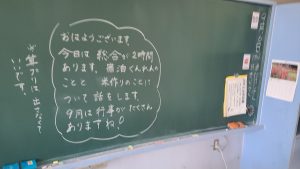 おはようございます
今日は 総合が2時間
あります。宿泊くんれんの
ことと 米作りのことに
ついて 話をします。
9月は行事がたくさん
ありますね!
※算プリは 出さなくて
いいです。